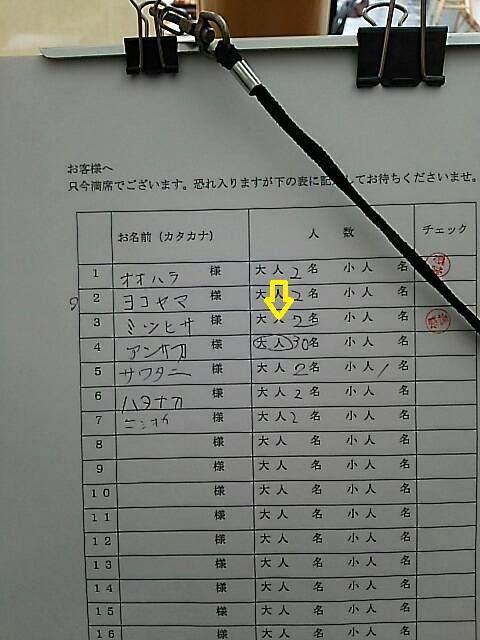 お客様へ
只今満席でございます。恐れ入りますが下の表に記入してお待ちくださいませ。
お名前（カタカナ） 人　数 チェック
1 オオハラ 様 大人 2 名 小人 名
2 ヨコヤマ 様 大人 2 名 小人 名
3 ミツヒサ 様 大人 2 名 小人 名
4 様 大人 30 名 小人 名
5 サワタニ 様 大人 2 名 小人 1 名
6 ハタナカ 様 大人 2 名 小人 名
7 ニシオカ 様 大人 2 名 小人 名
8 様 大人 名 小人 名
9 様 大人 名 小人 名
10 様 大人 名 小人 名
11 様 大人 名 小人 名
12 様 大人 名 小人 名
13 様 大人 名 小人 名
14 様 大人 名 小人 名
15 様 大人 名 小人 名
16 様 大人 名 小人 名